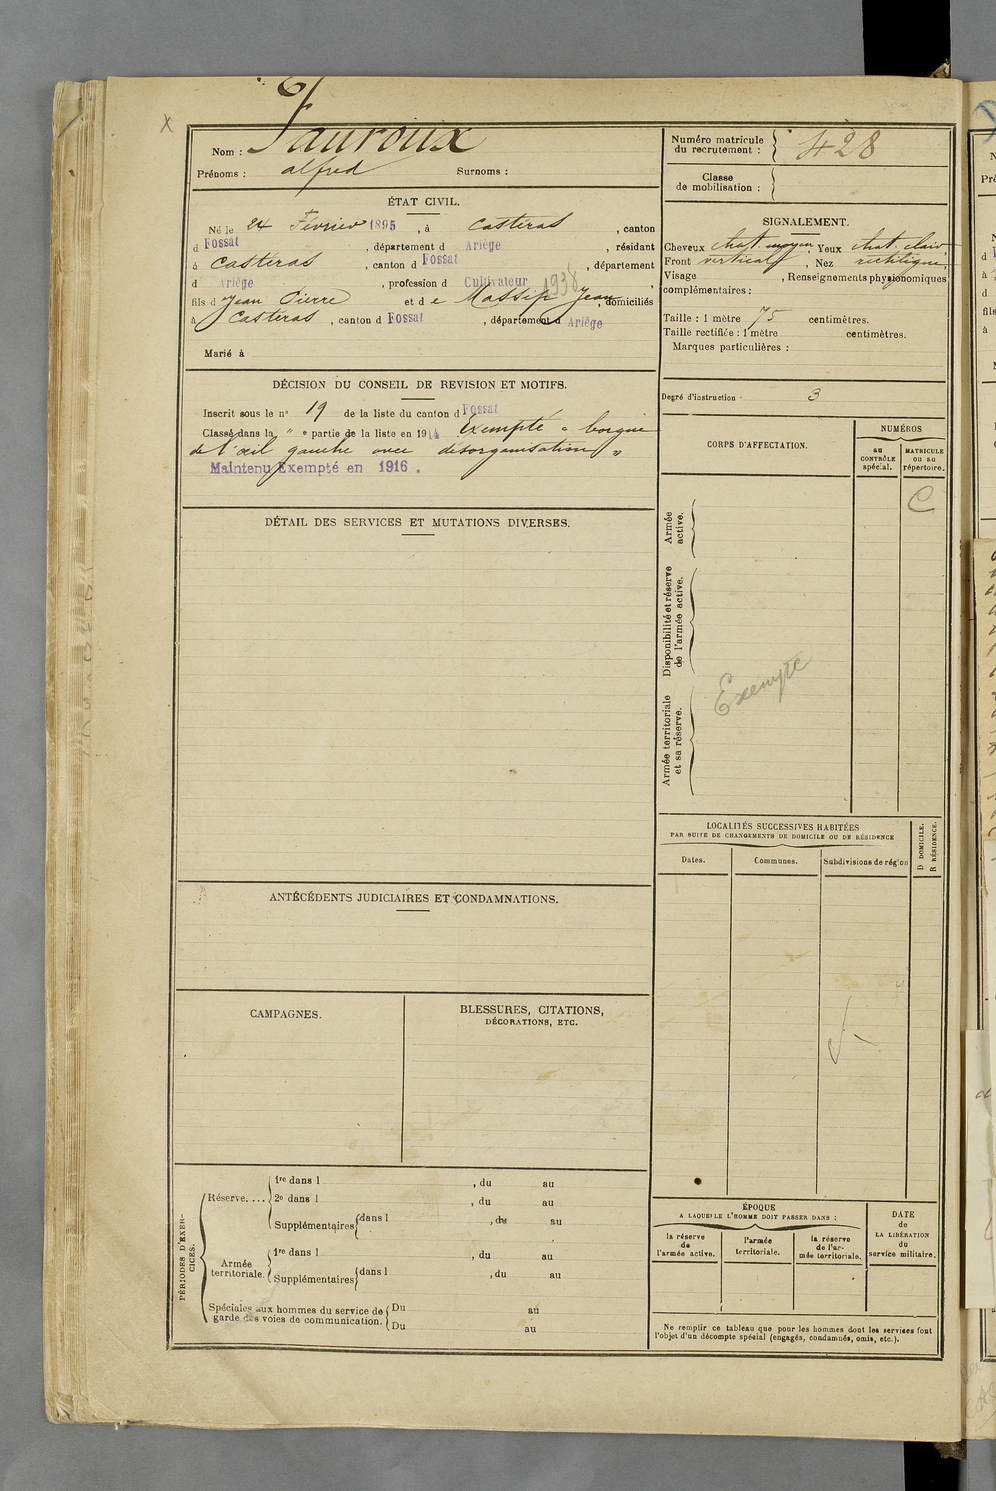 Nom : Fauroux
Prénoms : alfred Surnoms :
Numéro matricule du recrutement : 428
Classe de mobilisation :
ÉTAT CIVIL.
Né le 24 Février 1895, à Castéras, canton
d Fossat, département d Ariège, résidant
à Castéras, canton d Fossat, département
d Ariège, profession d Cultivateur 1938,
fils d Jean Pierre et d e Massip Jean, domiciliés
à Castéras, canton d Fossat, département d Ariège
Marié à
SIGNALEMENT.
Cheveux chat. moyen, Yeux chat. clair
Front vertical, Nez rectiligne,
Visage , Renseignements physionomiques
complémentaires :
Taille : 1 mètre 75 centimètres.
Taille rectifiée : 1 mètre centimètres.
Marques particulières :
Degré d'instruction · 3
DÉCISION DU CONSEIL DE REVISION ET MOTIFS.
Inscrit sous le n° 19 de la liste du canton d Fossat
Classé dans la " e partie de la liste en 1914 Exempté « borgne
de l'œil gauche avec désorganisation »
Maintenu Exempté en 1916.
CORPS D'AFFECTATION.
NUMÉROS
au CONTRÔLE spécial.
MATRICULE ou au répertoire.
C
Armée active.
Disponibilité et réserve de l'armée active.
Armée territoriale et sa réserve.
Exempté
DÉTAIL DES SERVICES ET MUTATIONS DIVERSES.
LOCALITÉS SUCCESSIVES HABITÉES
PAR SUITE DE CHANGEMENTS DE DOMICILE OU DE RÉSIDENCE
D DOMICILE.
R RÉSIDENCE.
Dates.
Communes.
Subdivisions de région
ANTÉCÉDENTS JUDICIAIRES ET CONDAMNATIONS.
CAMPAGNES.
BLESSURES, CITATIONS,
DÉCORATIONS, ETC.
PÉRIODES D'EXERCICES.
Réserve. ...
1re dans l , du au
2e dans l , du au
Supplémentaires dans l , du au
Armée territoriale.
1re dans l , du au
Supplémentaires dans l , du au
Spéciales aux hommes du service de
garde des voies de communication.
Du au
Du au
ÉPOQUE
A LAQUELLE L'HOMME DOIT PASSER DANS :
la réserve de l'armée active.
l'armée territoriale.
la réserve de l'armée territoriale.
DATE
de
LA LIBÉRATION
du
service militaire.
Ne remplir ce tableau que pour les hommes dont les services font
l'objet d'un décompte spécial (engagés, condamnés, omis, etc.).